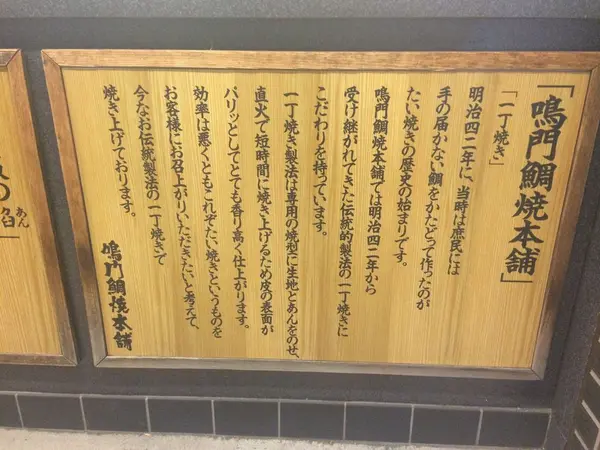 「鳴門鯛焼本舗」
「一丁焼き」
明治四二年に、当時は庶民には
手の届かない鯛をかたどって作ったのが
たい焼きの歴史の始まりです。
鳴門鯛焼本舗では明治四二年から
受け継がれてきた伝統的製法の一丁焼きに
こだわりを持っています。
一丁焼き製法は専用の焼型に生地とあんをのせ、
直火で短時間に焼き上げるため皮の表面が
パリッとしてとても香り高く仕上がります。
効率は悪くともこれぞたい焼きというものを
お客様にお召上がりいただきたいと考えて、
今なお伝統製法の一丁焼きで
焼き上げております。
鳴門鯛焼本舗
の餡」
あん